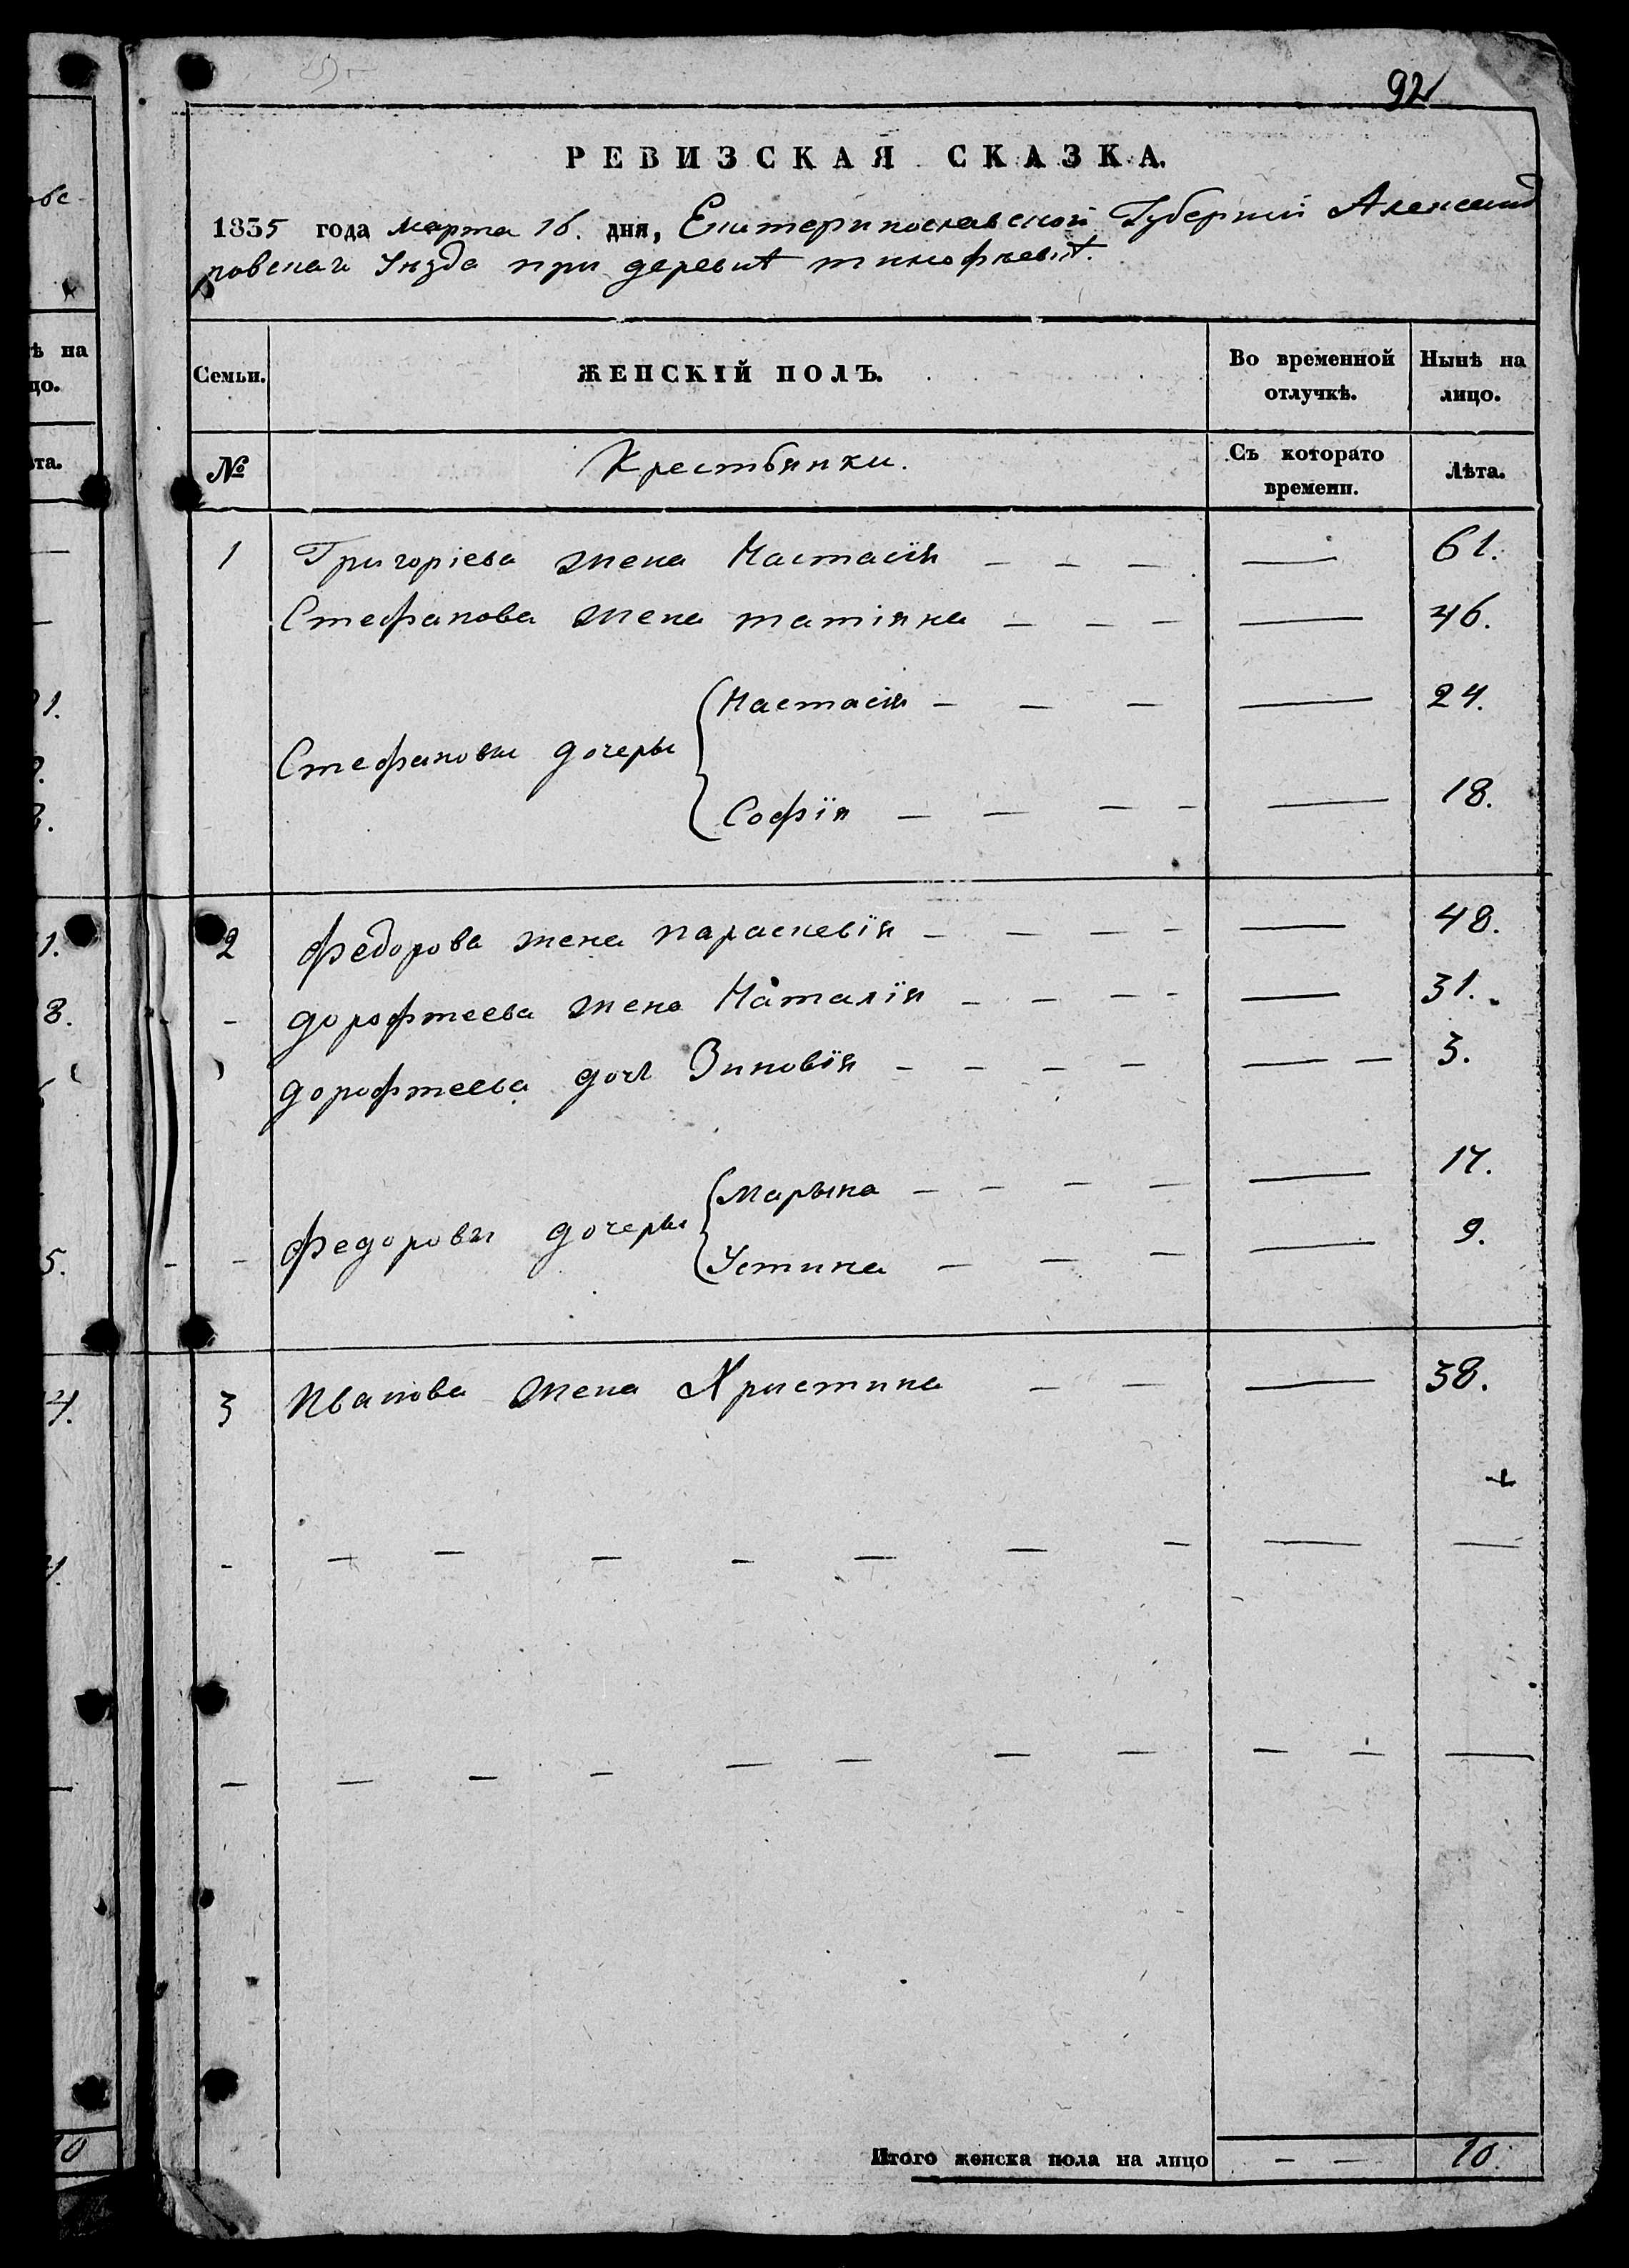 92
РЕВИЗСКАЯ СКАЗКА.
1835 года марта 16. дня, Екатеринославской Губернии Александ
ровскаго Уезда при деревнѣ тимофѣевкѣ.
Семьи. ЖЕНСКІЙ ПОЛЪ. Во временной отлучкѣ. Нынѣ на лицо.
№ Крестьянки. Съ которато времени. Лѣта.
1 Григоріева жена Настасія — — — — 61.
Стефанова жена татіяна — — — — 46.
Настасія — — — — 24.
Стефановы дочеры
Софія — — — — — 18.
2 федорова жена параскевія — — — — — 48.
- дорофтеева жена Наталія — — — — — 31.
дорофтеева дочь Зиновія — — — — — — 3.
Марына — — — — — 17.
- федоровы дочеры
Устина — — — — 9.
3 Иванова жена Христина — — — 38.
Итого женска пола на лицо — — 10.
ѣ на
цо.
та.
1.
1.
8.
5.
4.
10